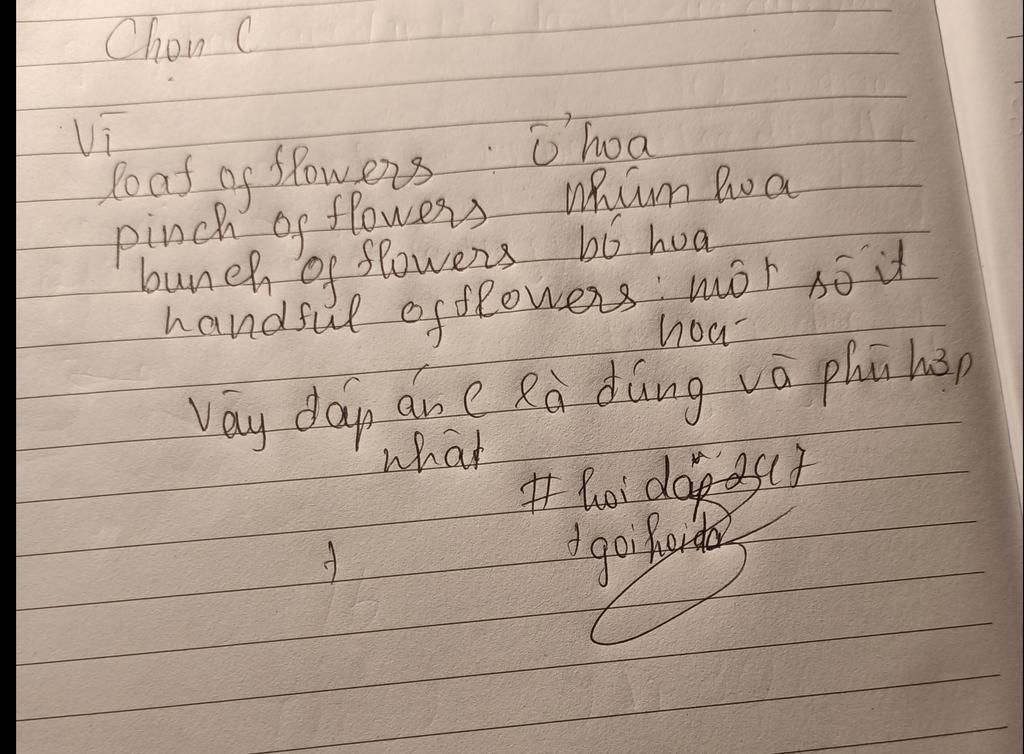 Chọn C
Vì
loaf of flowers : ổ hoa
pinch of flowers nhúm hoa
bunch of flowers bó hoa
handful of flowers : một số ít
hoa
Vậy đáp án C là đúng và phù hợp
nhất
# hoi dáp 247